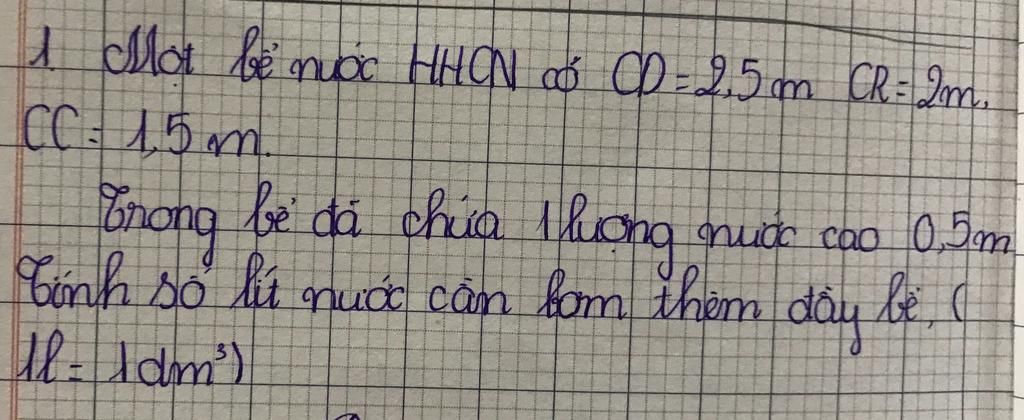 1. Một bể nước HHCN có CD = 2,5m CR = 2m.
CC = 1,5m.
Trong bể đã chứa 1 lượng nước cao 0,5m
Tính số lít nước cần bơm thêm đầy bể, (
1l = 1dm³)